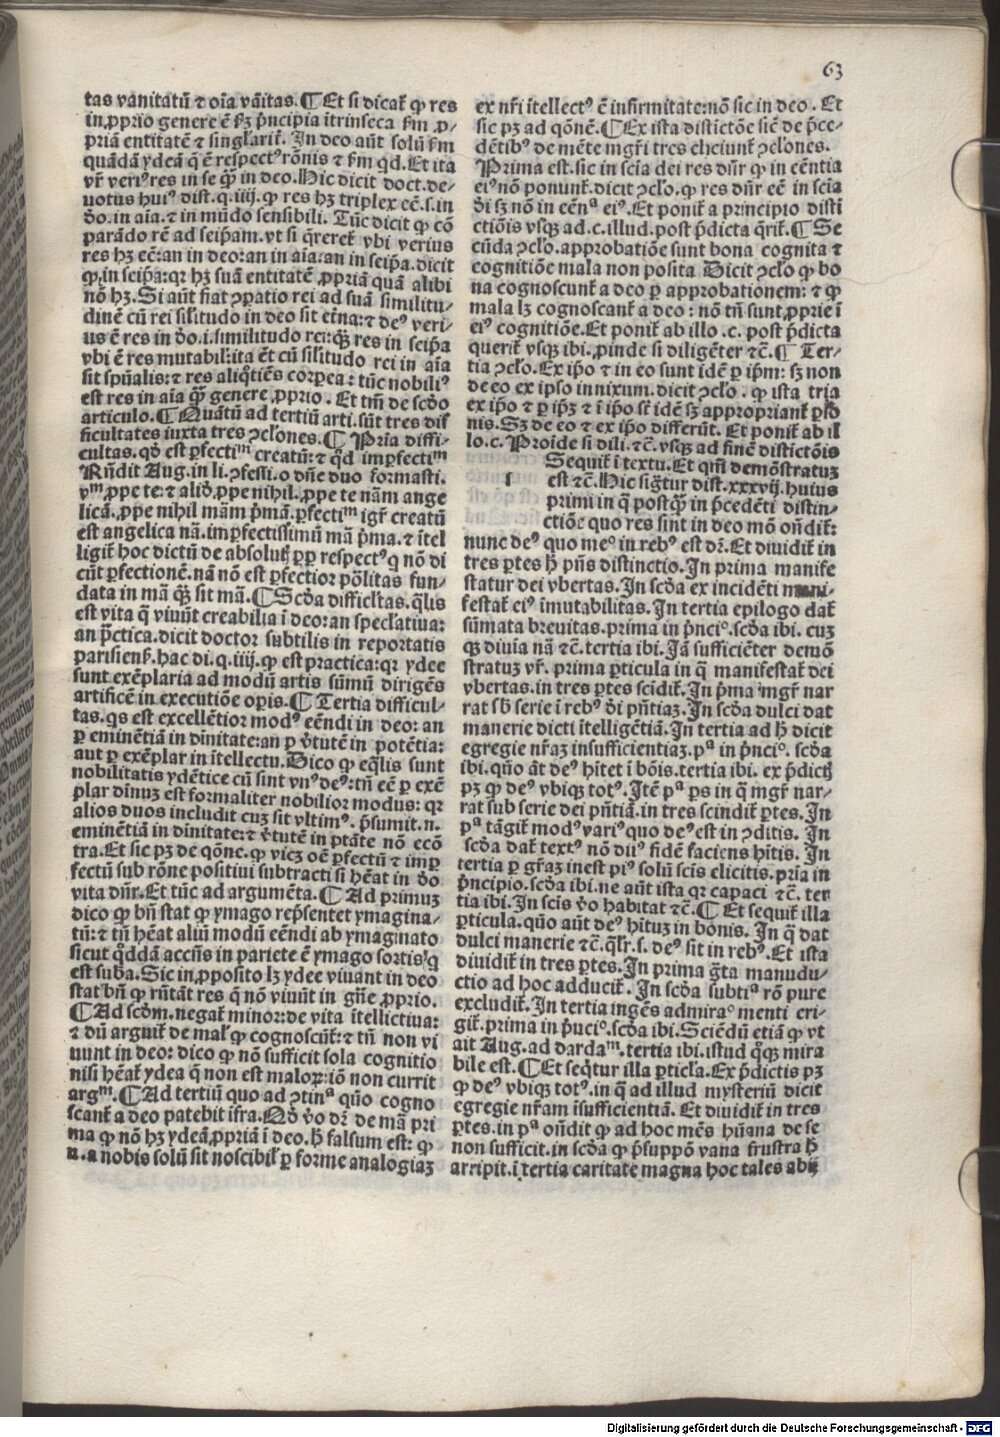 63
tas vanitatū ⁊ oīa vāitas.¶Et si dicat̄ ꝙ res
in ꝓprio genere ē ſꝫ pͥncipia ītrinseca ẜm ꝓ-
priā entitatē ⁊ singlarit̄. In deo aūt solū ẜm
quādā ydeā q̄ ē respectꝰ rōnis ⁊ ẜm qd. Et ita
vr̄ veriꝰ res in se q̄ꝫ in deo. Hic dicit doct. de-
uotus huiꝰ dist. q. iiij. ꝙ res hꝫ triplex eē. s. in
deo. in aīa. ⁊ in mūdo sensibili. Tūc dicit ꝙ cō
parādo rē ad seip̄am. vt si q̄reret̄ vbi verius
res hꝫ eē: an in deo: an in aīa: an in seip̄a. dicit
ꝙ in seip̄a: qꝛ hꝫ suā entitatē ꝓpriā quā alibi
nō hꝫ. Si aūt fiat ꝯparatio rei ad suā similitu-
dinē cū rei sil̄itudo in deo sit et̄na: ⁊ deꝰ veri-
us ē res in deo. i. similitudo rei: q̄ꝫ res in seip̄a
vbi ē res mutabil̄: ita ēt cū sil̄itudo rei in aīa
sit spūalis: ⁊ res aliq̄tiēs corꝑea: tūc nobiliꝰ
est res in aīa q̄ꝫ genere ꝓprio. Et tm̄ de scd̄o
articulo.¶Quātū ad tertiū arti. sūt tres dif
ficultates iuxta tres ꝯcl̄ones.¶Pria diffi-
cultas. qd est ꝑfectiᵐ creatū: ⁊ qd imꝑfectiᵐ
Rn̄dit Aug. in li. ꝯfessi. o dn̄e duo formasti.
vᵐ ꝓpe te: ⁊ aliud ꝓpe nihil. ꝓpe te nām ange
licā. ꝓpe nihil mām pͥmā. ꝑfectiᵐ igr̄ creatū
est angelica nā. imꝑfectissimū mā pͥma. ⁊ ītel
ligit̄ hoc dictū de absolutꝭ ꝓpꝛ respectꝰ q nō di
cūt ꝑfectionē. nā nō est ꝑfectior pōlitas fun-
data in mā q̄ꝫ sit mā.¶Scd̄a difficl̄tas. q̄lis
est vita q̄ viuūt creabilia ī deo: an speclatiua:
an pͣctica. dicit doctor subtilis in reportatis
parisienẜ. hac di. q. iiij. ꝙ est practica: qꝛ ydee
sunt exēplaria ad modū artis sūmū dirigēs
artificē in executiōe oꝑis.¶Tertia difficul-
tas. qs est excellētior modꝰ eēndi in deo: an
ꝑ eminētiā in diuinitate: an ꝑ vͥtutē in potētia:
aut ꝑ exēplar in ītellectu. Dico ꝙ eq̄lis sunt
nobilitatis ydētice cū sint vnꝰ deꝰ: tn̄ eē ꝑ exē
plar diuinuꝫ est formaliter nobilior modus: qꝛ
alios duos includit cuꝫ sit vltimꝰ. pͥsumit. n.
eminētiā in diuinitate: ⁊ vͥtutē in ptāte nō ecō
tra. Et sic pꝫ de qōne. ꝙ vicꝫ oē ꝑfectū ⁊ imꝑ
fectū sub rōne positiui subtracti si hēat in deo
vita dn̄r. Et tūc ad argumēta.¶Ad primuꝫ
dico ꝙ bn̄ stat ꝙ ymago rep̄sentet ymagina-
tū: ⁊ tn̄ hēat aliū modū eēndi ab ymaginato
sicut q̄ddā accn̄s in pariete ē ymago sortis q
est suba. Sic in ꝓposito lꝫ ydee viuant in deo
stat bn̄ ꝙ rn̄tāt res q̄ nō viuūt in gn̄e ꝓprio.
¶Ad scd̄m. negat̄ minor: de vita ītellictiua:
⁊ dū arguit̄ de mal̄ ꝙ cognoscūt̄: ⁊ tn̄ non vi
uunt in deo: dico ꝙ nō sufficit sola cognitio
nisi hēat̄ ydea q̄ non est maloꝝ: iō non currit
argᵐ.¶Ad tertiū quo ad ꝯtinᵃ quo cogno
scant̄ a deo patebit īfra. Qd vo dꝛ de mā pri
ma ꝙ nō hꝫ ydeā ꝓpriā ī deo. h̄ falsum est: ꝙ
n. a nobis solū sit noscibil̄ ꝑ forme analogiaꝫ
ex nr̄i ītellectꝰ ē infirmitate: nō sic in deo. Et
sic pꝫ ad qōnē.¶Ex ista distictōe siē de pͥce-
dētibꝰ de mēte mgr̄i tres eliciunt̄ ꝯcl̄ones.
Prima est. sic in scīa dei res dn̄r ꝙ in eēntia
eiꝰ nō ponunt̄. dicit ꝯclo. ꝙ res dn̄r eē in scīa
dei sꝫ nō in eēnᵃ eiꝰ. Et ponit̄ a principio disti
ctiōis vsqꝫ ad. c. illud. post pͥdicta q̄rit̄.¶Se
cūda ꝯclo. approbatiōe sunt bona cognita ⁊
cognitiōe mala non posita. Dicit ꝯclo ꝙ bo
na cognoscunt̄ a deo ꝑ approbationem: ⁊ ꝙ
mala lꝫ cognoscant̄ a deo: nō tn̄ sunt ꝓprie ī
eiꝰ cognitiōe. Et ponit̄ ab illo. c. post pͥdicta
querit̄ vsqꝫ ibi. ꝓinde si diligēter ⁊c̄.¶Ter-
tia ꝯclo. Ex ip̄o ⁊ in eo sunt idē ꝑ ip̄m: sꝫ non
de eo ex ipso innixum. dicit ꝯclo. ꝙ ista tria
ex ip̄o ⁊ ꝑ ip̄ꝫ ⁊ ī ip̄o st̄ idē sꝫ appropriant̄ ꝑso
nis. Sꝫ de eo ⁊ ex ip̄o differūt. Et ponit̄ ab il
lo. c. Proide si dili. ⁊c̄. vsqꝫ ad finē distictōis
Sequit̄ ī textu. Et qn̄i demōstratuꝫ
est ⁊c̄. Hic sigr̄tur dist. xxxvij. huius
primi in q̄ postq̄ꝫ in pͥcedēti distin-
ctiōe quo res sint in deo mō on̄dit̄:
nunc deꝰ quo meᵒ in rebꝰ est dꝛ. Et diuidit̄ in
tres ꝑtes h̄ pn̄s distinctio. In prima manife
statur dei vbertas. In scd̄a ex incidēti mani-
festat̄ eiꝰ īmutabilitas. In tertia epilogo dat̄
sūmata breuitas. prima in pͥnciᵒ. scd̄a ibi. cuꝫ
qꝫ diuia nā ⁊c̄. tertia ibi. Jā sufficiēter demō
stratuꝫ vr̄. prima ꝑticula in q̄ manifestat̄ dei
vbertas. in tres ꝑtes scidit̄. In pͥma mgr̄ nar
rat sb̄ serie ī rebꝰ dei pn̄tiaꝫ. In scd̄a dulci dat
manerie dicti ītelligētiā. In tertia ad h̄ dicit
egregie nr̄aꝫ insufficientiaꝫ. pᵃ in pͥnciᵒ. scd̄a
ibi. quō āt deꝰ hītet ī bōis. tertia ibi. ex pͥdictꝭ
pꝫ ꝙ deꝰ vbiqꝫ totꝰ. Itē pᵃ ꝑs in q̄ mgr̄ nar-
rat sub serie dei pn̄tiā. in tres scindit̄ ꝑtes. In
pᵃ tāgit̄ modꝰ variꝰ quo deꝰ est in ꝯditis. In
scd̄a dat̄ textꝰ nō diuꝰ fidē faciens hītis. In
tertia ꝑ gr̄aꝫ inest piꝰ solū scis elicitis. pria in
pͥncipio. scd̄a ibi. ne aūt ista qꝛ capaci ⁊c̄. ter
tia ibi. In scis vo habitat ⁊c̄.¶Et sequit̄ illa
ꝑticula. quō aūt deꝰ hītuꝫ in bōnis. In q̄ dat
dulci manerie ⁊c̄. q̄lr̄. s. deꝰ sit in rebꝰ. Et ista
diuidit̄ in tres ꝑtes. In prima gr̄ta manudu-
ctio ad hoc adducit̄. In scd̄a subtiᵃ rō pure
excludit̄. In tertia ingēs admiraᵒ menti eri-
git̄. prima in pͥnciᵒ. scd̄a ibi. Sciēdū etiā ꝙ vt
ait Aug. ad dardaᵐ. tertia ibi. istud qͦqꝫ mira
bile est.¶Et seq̄tur illa ꝑticla. Ex pͥdictis pꝫ
ꝙ deꝰ vbiqꝫ totꝰ. in q̄ ad illud mysteriū dicit
egregie nr̄am īsufficientiā. Et diuidit̄ in tres
ꝑtes. in pᵃ on̄dit ꝙ ad hoc mēs hūana de se
non sufficit. in scd̄a ꝙ pͥsuppō vana frustra h̄
arripit. ī tertia caritate magna hoc tales abij
Digitalisierung gefördert durch die Deutsche Forschungsgemeinschaft - DFG